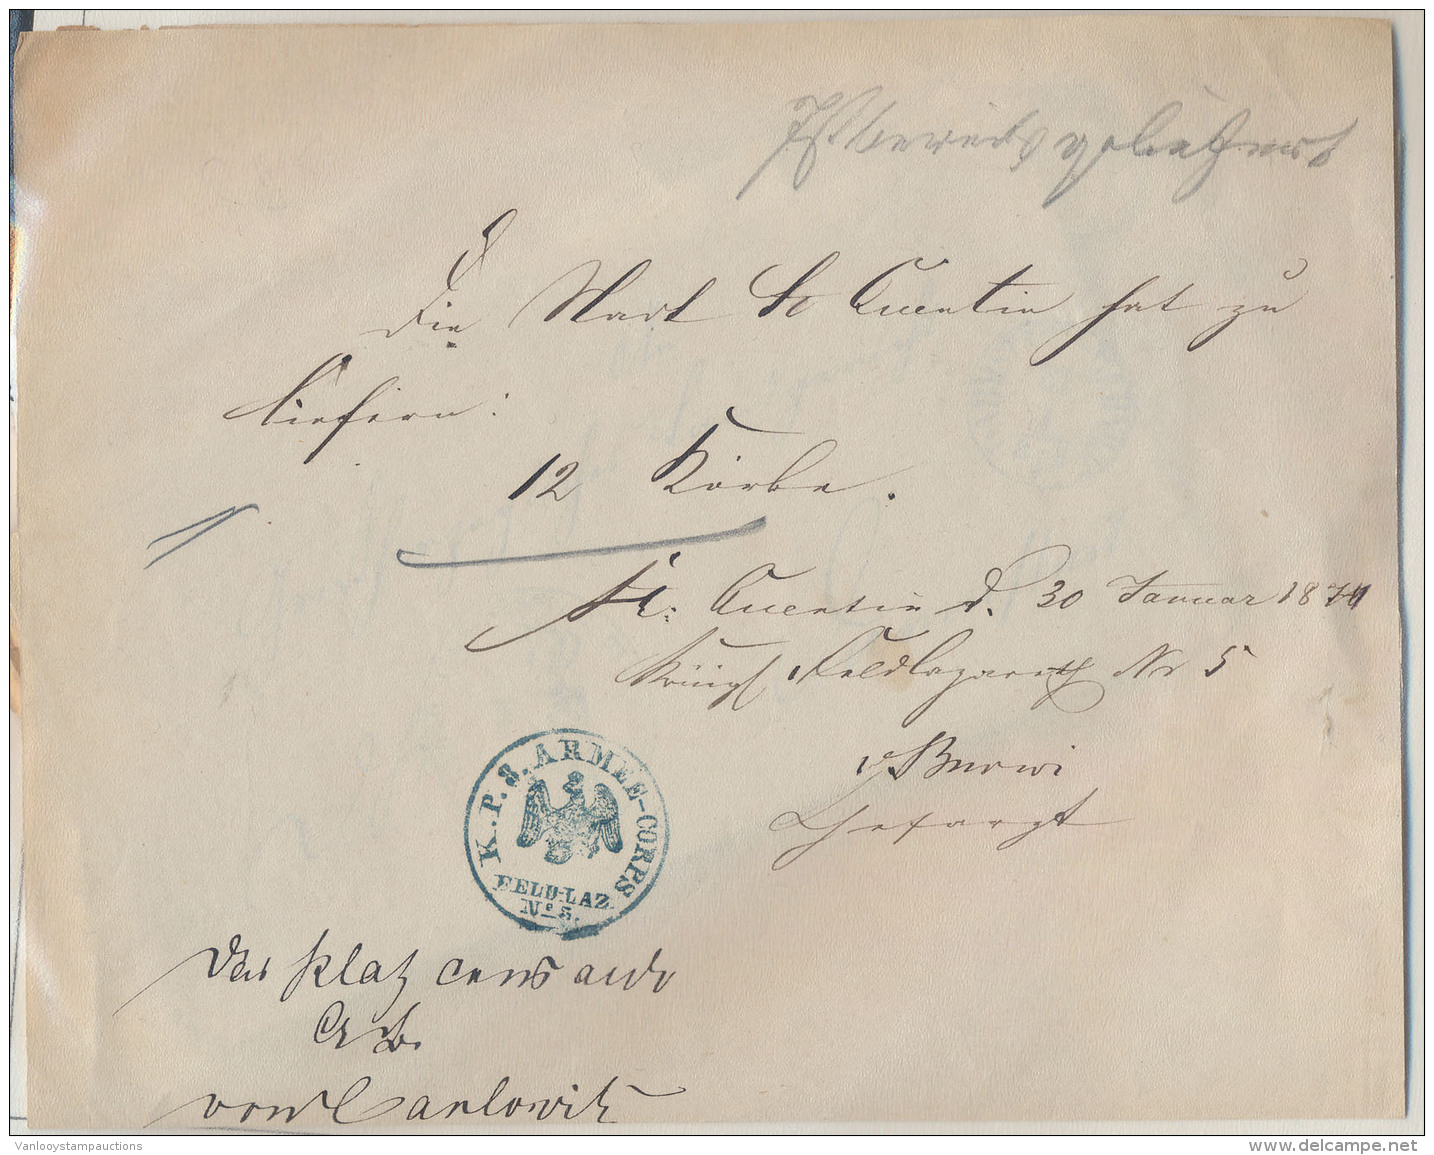 Ist bereits geliefert
Die Stadt St Quentin hat zu
liefern:
12 Körbe.
St. Quentin d. 30 Januar 1871
Königl Feldlazareth Nr 5
Chefarzt
K. P. 8. ARMEE-CORPS
FELD-LAZ.
No 5.
Das Platz
von Carlowitz
Vanlooystampauctions
delcampe.net